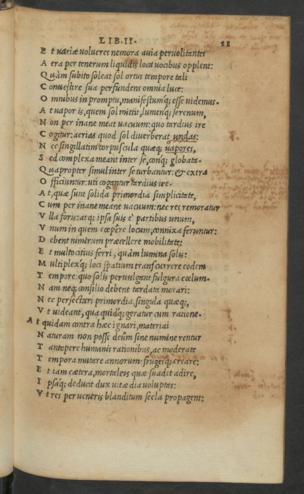 LIB·II·
Et variæ volucres nemora auia peruolitantes
Aera per tenerum liquidis loca uocibus opplent:
Quàm subito soleat sol ortus tempore tali
Conuestire sua perfundens omnia luce:
Omnibus in promptu, manifestumq; esse uidemus.
At uapor is, quem sol mittit, lumenq; serenum,
Non per inane meat uacuum: quo tardius ire
Cogitur; aerias quod sol diuerberat undas:
Nec singillatim corpuscula quæq; uaporis,
Sed complexa meant inter se, conq; globata.
Quapropter simul inter se
Officiuntur: uti cogantur tardius ire.
At, quæ sunt solida primordia simplicitate,
Cum per inane meant uacuum: nec res remoratur
Vlla foris: atq; ipsa suis è partibus unum,
Vnum in quem cœpere locum, connixa feruntur:
Debent nimirum præcellere mobilitate;
Et multo citius ferri, quàm lumina solis:
Multiplexq; loci spatium transcurrere eodem
Tempore: quo solis peruulgant fulgura cœlum.
Nam neq; consilio debent tardata morari:
Nec persectari primordia singula quæq;,
Vt uideant, qua quidq; geratur cum ratione.
At quidam contra hæc ignari, materiai
Naturam non posse deûm sine numine rentur
Tantopere humanis rationibus, ac moderate
Tempora mutare annorum: frugesq; creare:
Et iam cætera, mortaleis quæ suadet adire,
Ipsaq; deducit dux uitæ dia uoluptas:
Vt res per ueneris blanditum secla propagent: